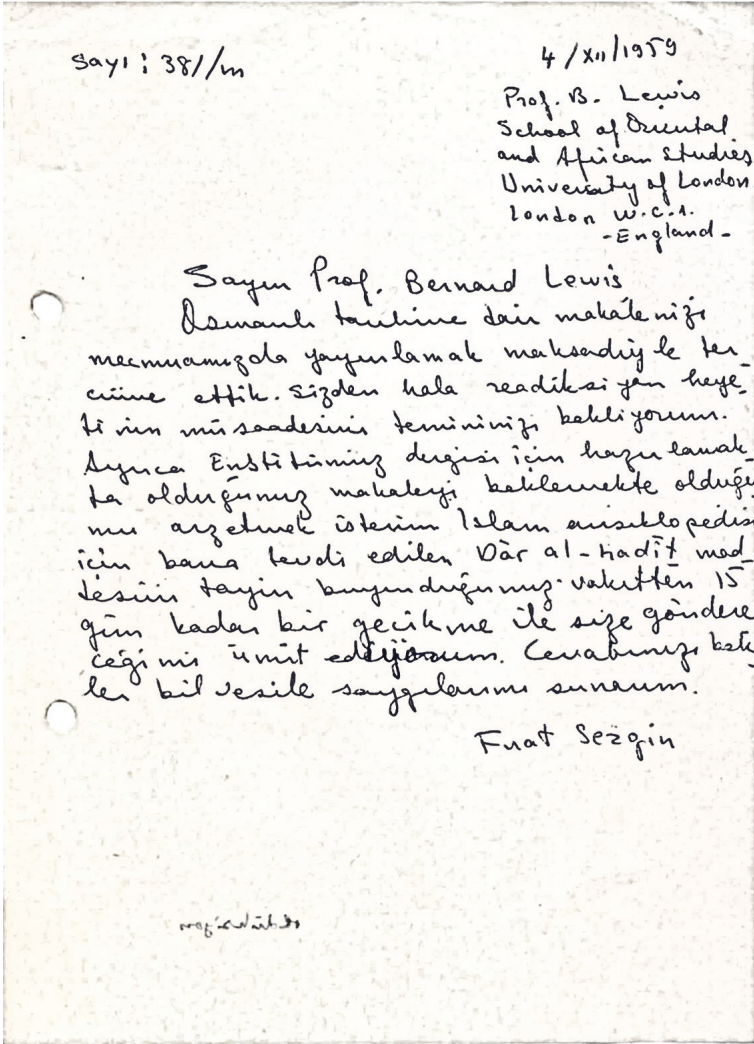 Sayı : 381/m
4/XII/1959
Prof. B. Lewis
School of Oriental
and African Studies
University of London
London W.C.1.
-England-
Sayın Prof. Bernard Lewis
Osmanlı tarihine dair makalenizi
mecmuamızda yayınlamak maksadiyle ter-
cüme ettik. Sizden hala readiksiyon heye-
tinin müsaadesini temininizi bekliyorum.
Ayrıca Enstitümüz dergisi için hazırlamak-
ta olduğunuz makaleyi beklemekte olduğu
mu arzetmek isterim Islam ansiklopedisi
için bana tevdi edilen Dār al-Hadīt mad-
desini tayin buyurduğunuz vakitten 15
gün kadar bir gecikme ile size göndere
ceğimi ümit ediyorum. Cevabınızı bek
ler bil vesile saygılarımı sunarım.
Fuat Sezgin